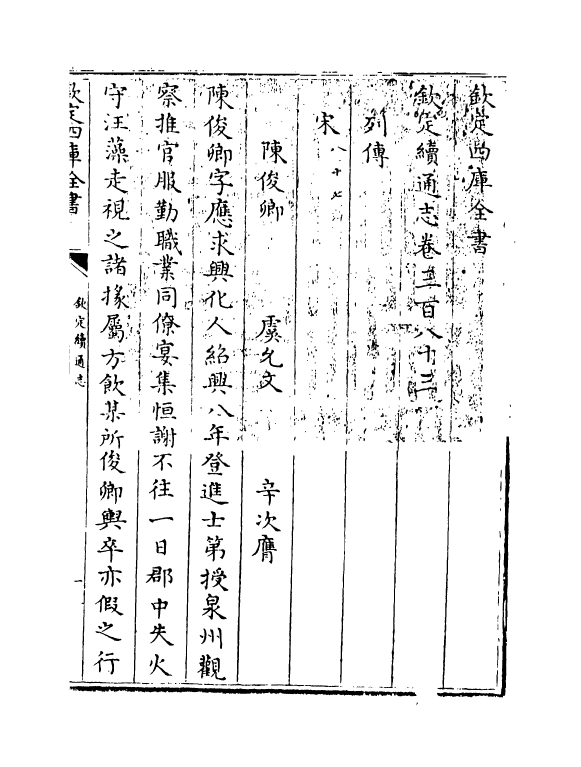 欽定四庫全書
欽定續通志卷三百八十三
列傳
宋八十七
陳俊卿 虞允文 辛次膺
陳俊卿字應求興化人紹興八年登進士第授泉州觀
察推官服勤職業同僚宴集恒謝不往一日郡中失火
守汪藻走視之諸掾屬方飲某所俊卿輿卒亦假之行
欽定四庫全書
欽定續通志
一